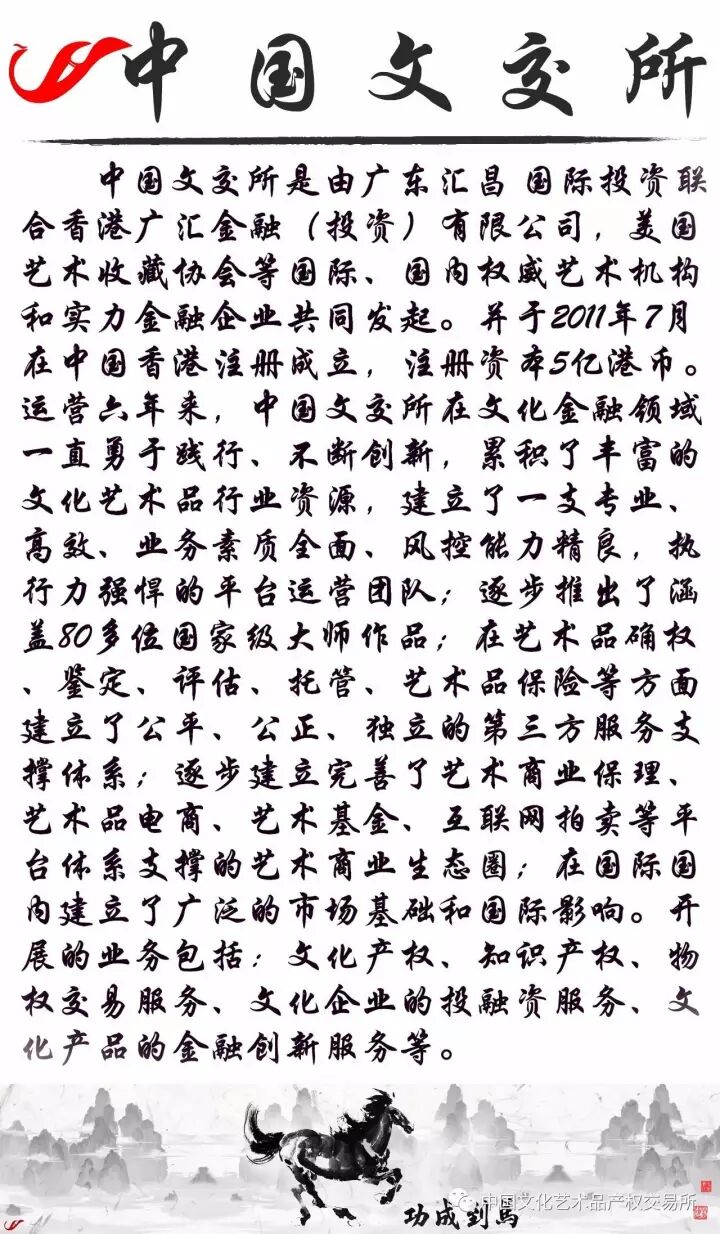 中国文交所
中国文交所是由广东汇昌 国际投资联
合香港广汇金融（投资）有限公司，美国
艺术收藏协会等国际、国内权威艺术机构
和实力金融企业共同发起。并于2011年7月
在中国香港注册成立，注册资本5亿港币。
运营六年来，中国文交所在文化金融领域
一直勇于践行、不断创新，累积了丰富的
文化艺术品行业资源，建立了一支专业、
高效、业务素质全面、风控能力精良，执
行力强悍的平台运营团队；逐步推出了涵
盖80多位国家级大师作品；在艺术品确权
、鉴定、评估、托管、艺术品保险等方面
建立了公平、公正、独立的第三方服务支
撑体系；逐步建立完善了艺术商业保理、
艺术品电商、艺术基金、互联网拍卖等平
台体系支撑的艺术商业生态圈；在国际国
内建立了广泛的市场基础和国际影响。开
展的业务包括：文化产权、知识产权、物
权交易服务、文化企业的投融资服务、文
化产品的金融创新服务等。
中国文化艺术品产权交易所
功成到馬